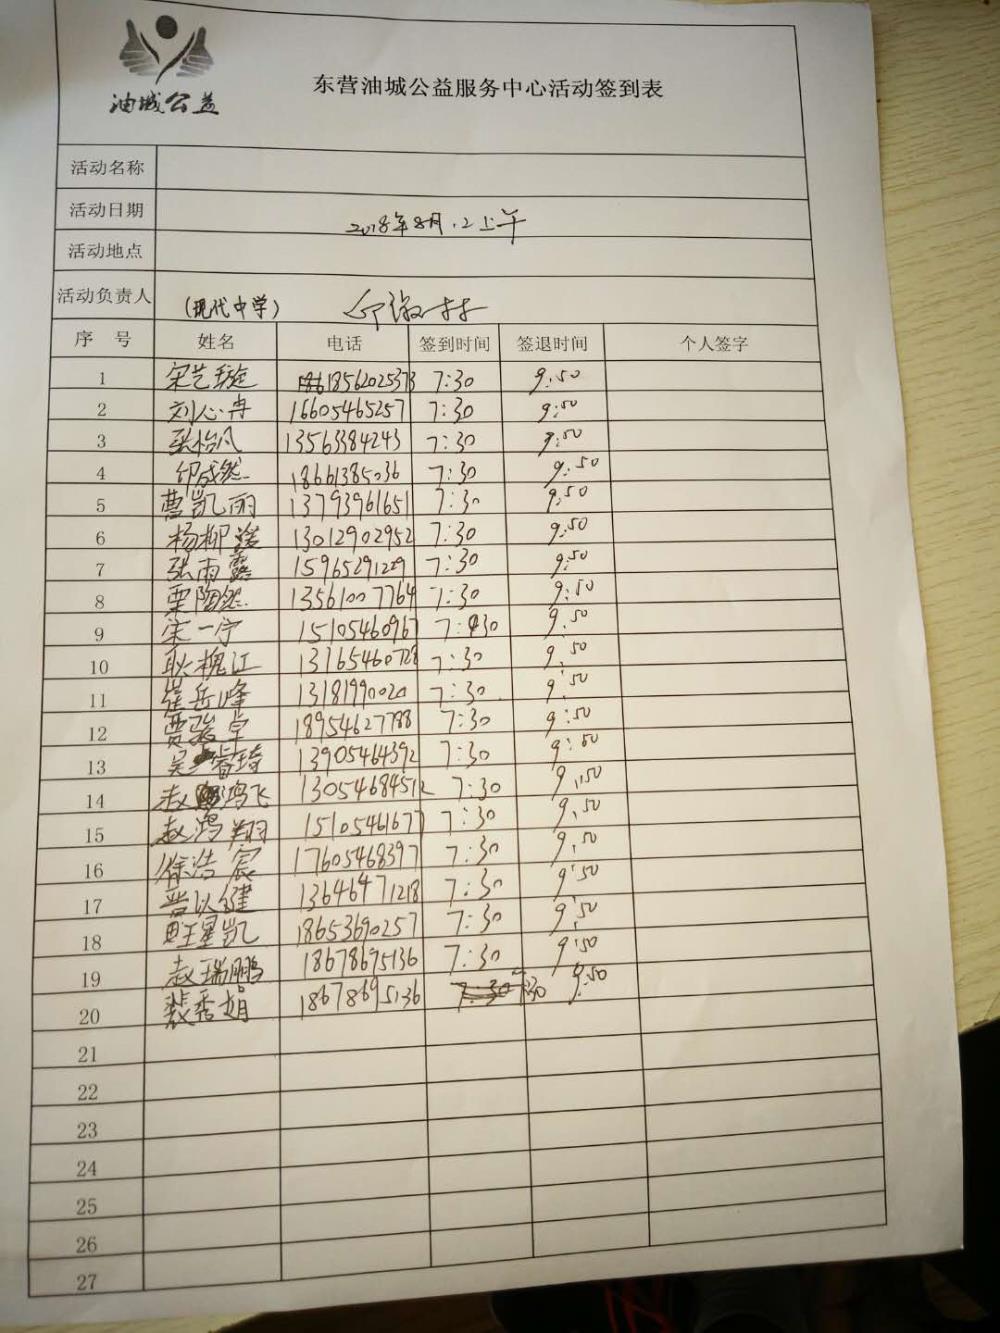 油城公益
东营油城公益服务中心活动签到表
活动名称
活动日期 2018年8月.2上午
活动地点
活动负责人 (现代中学)
序号 姓名 电话 签到时间 签退时间 个人签字
1 宋艺璇 18562025373 7:30 9:50
2 刘心冉 16605465257 7:30 9:50
3 张怡凡 13563384243 7:30 9:50
4 邱成然 18661385036 7:30 9:50
5 曹凯丽 13793961651 7:30 9:50
6 杨柳 13012902952 7:30 9:50
7 张雨露 15965291229 7:30 9:50
8 栗陶然 13561007764 7:30 9:50
9 宋一宁 15105460967 7:30 9:50
10 耿槐江 13165460728 7:30 9:50
11 崔岳峰 13181990020 7:30 9:50
12 贾骏卓 18954627788 7:30 9:50
13 吴睿琦 13905464392 7:30 9:50
14 赵鸿飞 13054684512 7:30 9:50
15 赵鸿翔 15105461677 7:30 9:50
16 徐浩宸 17605468397 7:30 9:50
17 晋以健 13646471218 7:30 9:50
18 王星凯 18653690257 7:30 9:50
19 赵瑞鹏 18678695136 7:30 9:50
20 裴秀娟 18678695136 7:30 9:50
21
22
23
24
25
26
27